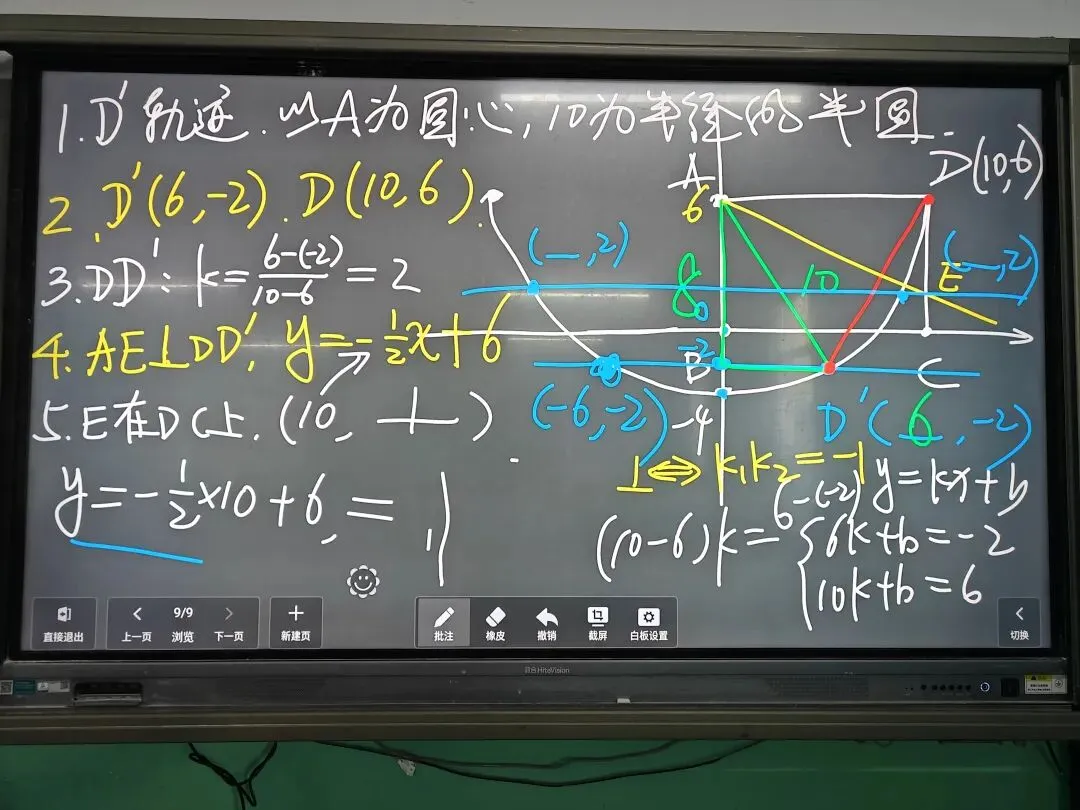 1. D'轨迹.以A为圆心,10为半径的半圆.
2. D'(6,-2). D(10,6).
3. DD': k=6-(-2)/10-6=2
4. AE⊥DD', y=-1/2x+6
5. E在DC上. (10, 1)
y=-1/2×10+6,=1
A
6
D(10,6)
(—,2)
(—,2)
E
8
10
0
B
-2
C
(-6,-2)
-4
D'(6,-2)
⊥⇔k₁k₂=-1
y=kx+b
(10-6)k=6-(-2)
{6k+b=-2
10k+b=6
直接退出
上一页
9/9
浏览
下一页
新建页
批注
橡皮
撤销
截屏
白板设置
切换
HiteVision